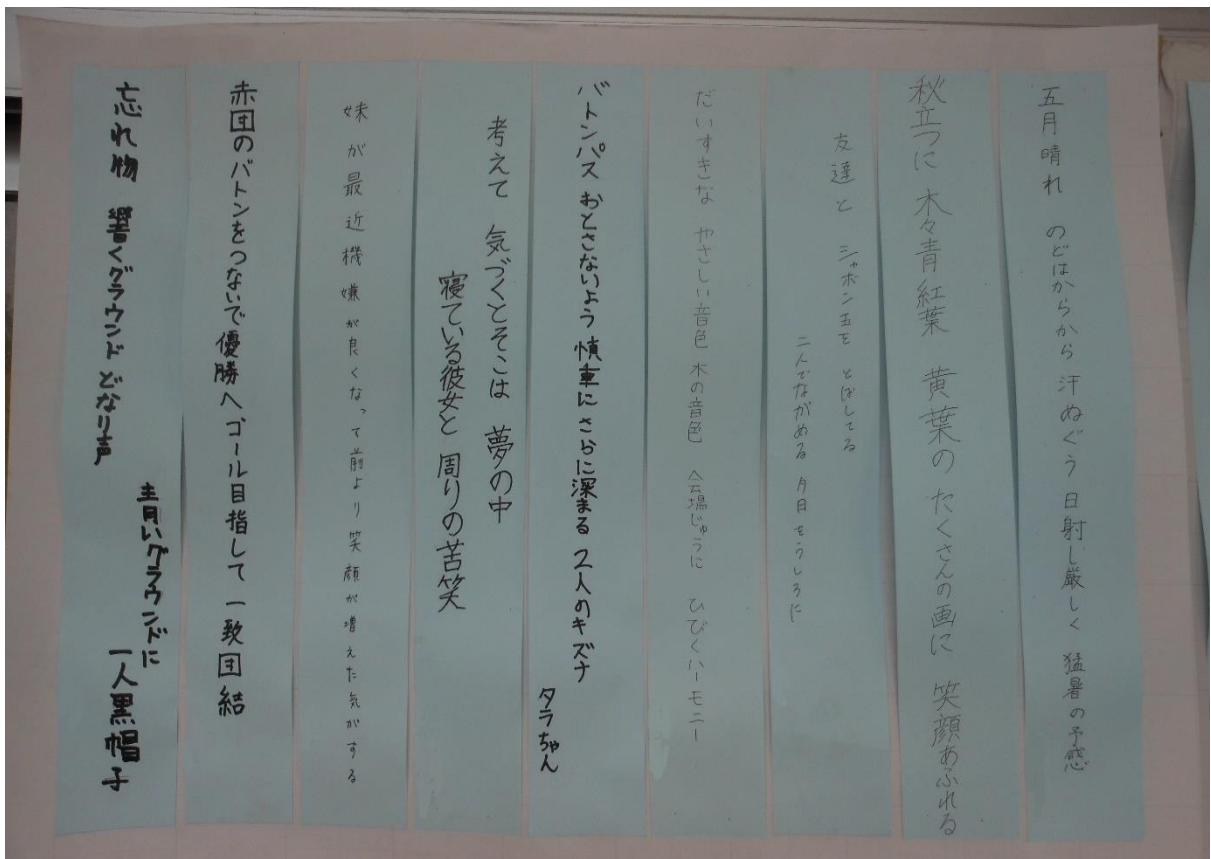 五月晴れ のどはからから 汗ぬぐう 日射し厳しく 猛暑の予感
秋立つに 木々青紅葉 黄葉の たくさんの画に 笑顔あふれる
友達と シャボン玉を とばしてる
二人でながめる 夕日をうしろに
だいすきな やさしい音色 木の音色 会場じゅうに ひびくハーモニー
バトンパス おとさないよう 慎重に さらに深まる 2人のキズナ
タラちゃん
考えて 気づくとそこは 夢の中
寝ている彼女と 周りの苦笑
妹が最近機嫌が良くなって前より笑顔が増えた気がする
赤団のバトンをつないで優勝へゴール目指して一致団結
忘れ物 響くグラウンド どなり声
青いグラウンドに
一人黒帽子